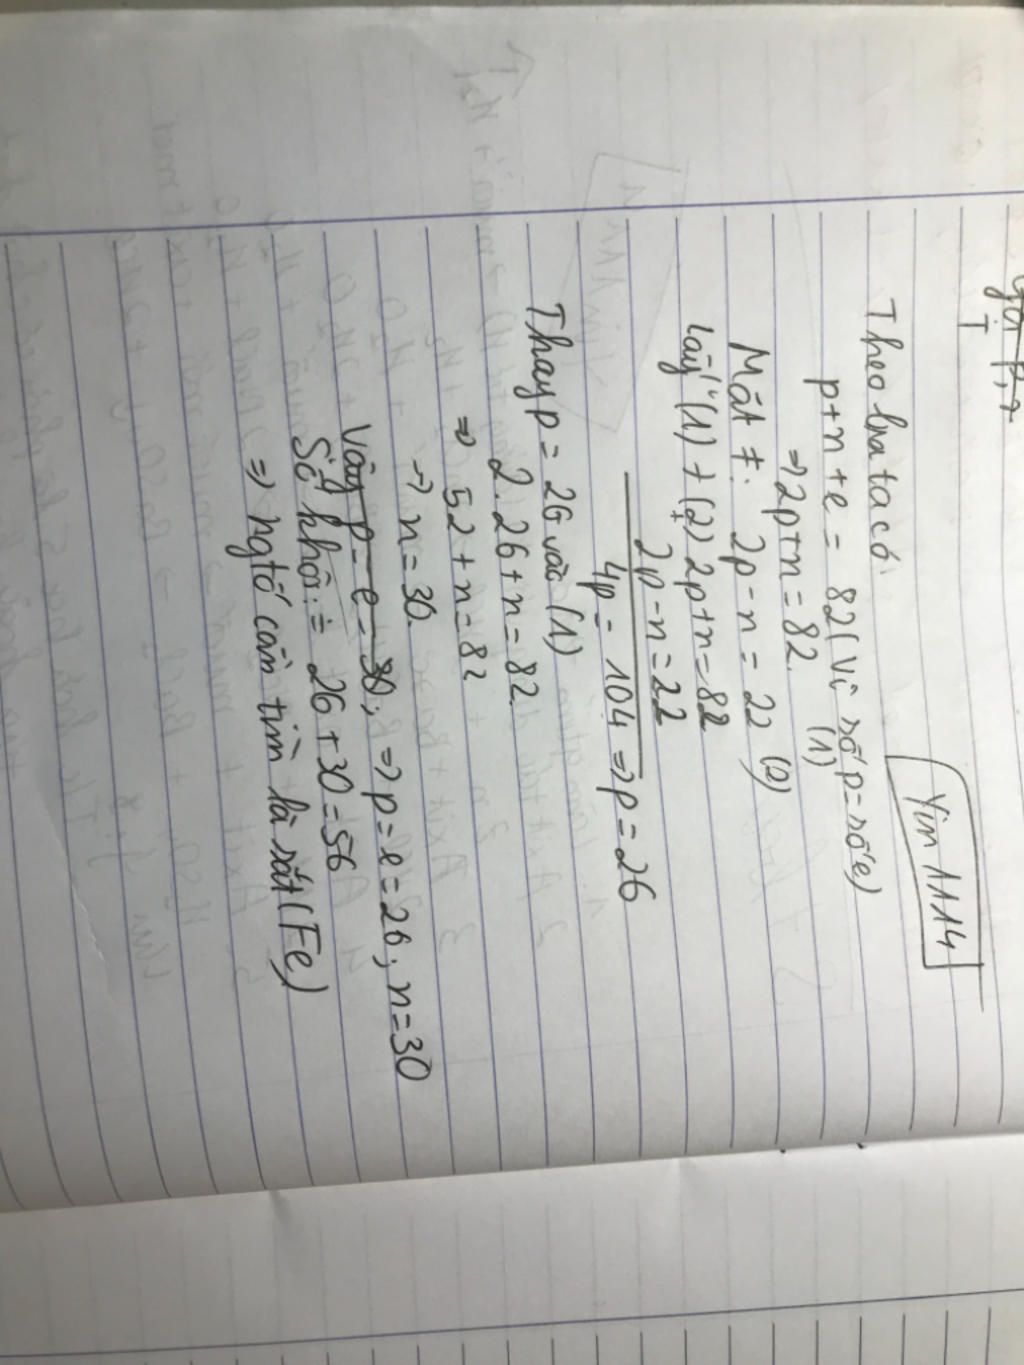 Yin 1114
Theo bra ta có:
p+n+e = 82 (vì số p = số e)
⇒ 2p+n = 82. (1)
Mặt ≠: 2p-n = 22 (2)
Lấy (1) + (2) 2p+n=82
+
2p-n=22
4p= 104 ⇒ p = 26
Thay p = 26 vào (1)
2.26+n=82.
⇒ 52+n=82
→ n=30.
Vậy p=e=30, ⇒ p=e=26, n=30
Số khối: = 26+30=56
⇒ ngtố cần tìm là sắt (Fe)